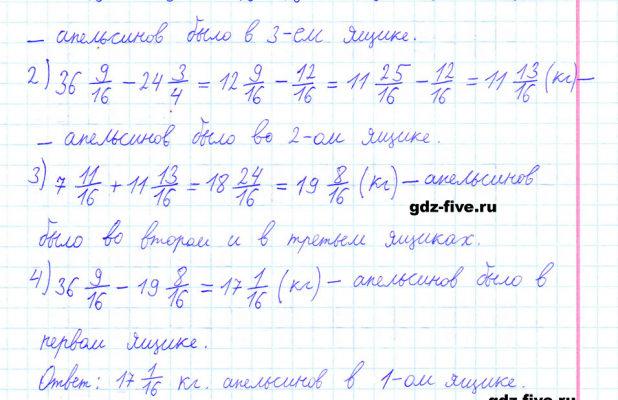 – апельсинов было в 3-ем ящике.
2) 36 9/16 – 24 3/4 = 12 9/16 – 12/16 = 11 25/16 – 12/16 = 11 13/16 (кг) –
– апельсинов было во 2-ом ящике.
3) 7 11/16 + 11 13/16 = 18 24/16 = 19 8/16 (кг) – апельсинов
gdz-five.ru
было во втором и в третьем ящиках.
4) 36 9/16 – 19 8/16 = 17 1/16 (кг) – апельсинов было в
первом ящике.
Ответ: 17 1/16 кг. апельсинов в 1-ом ящике.
gdz-five.ru